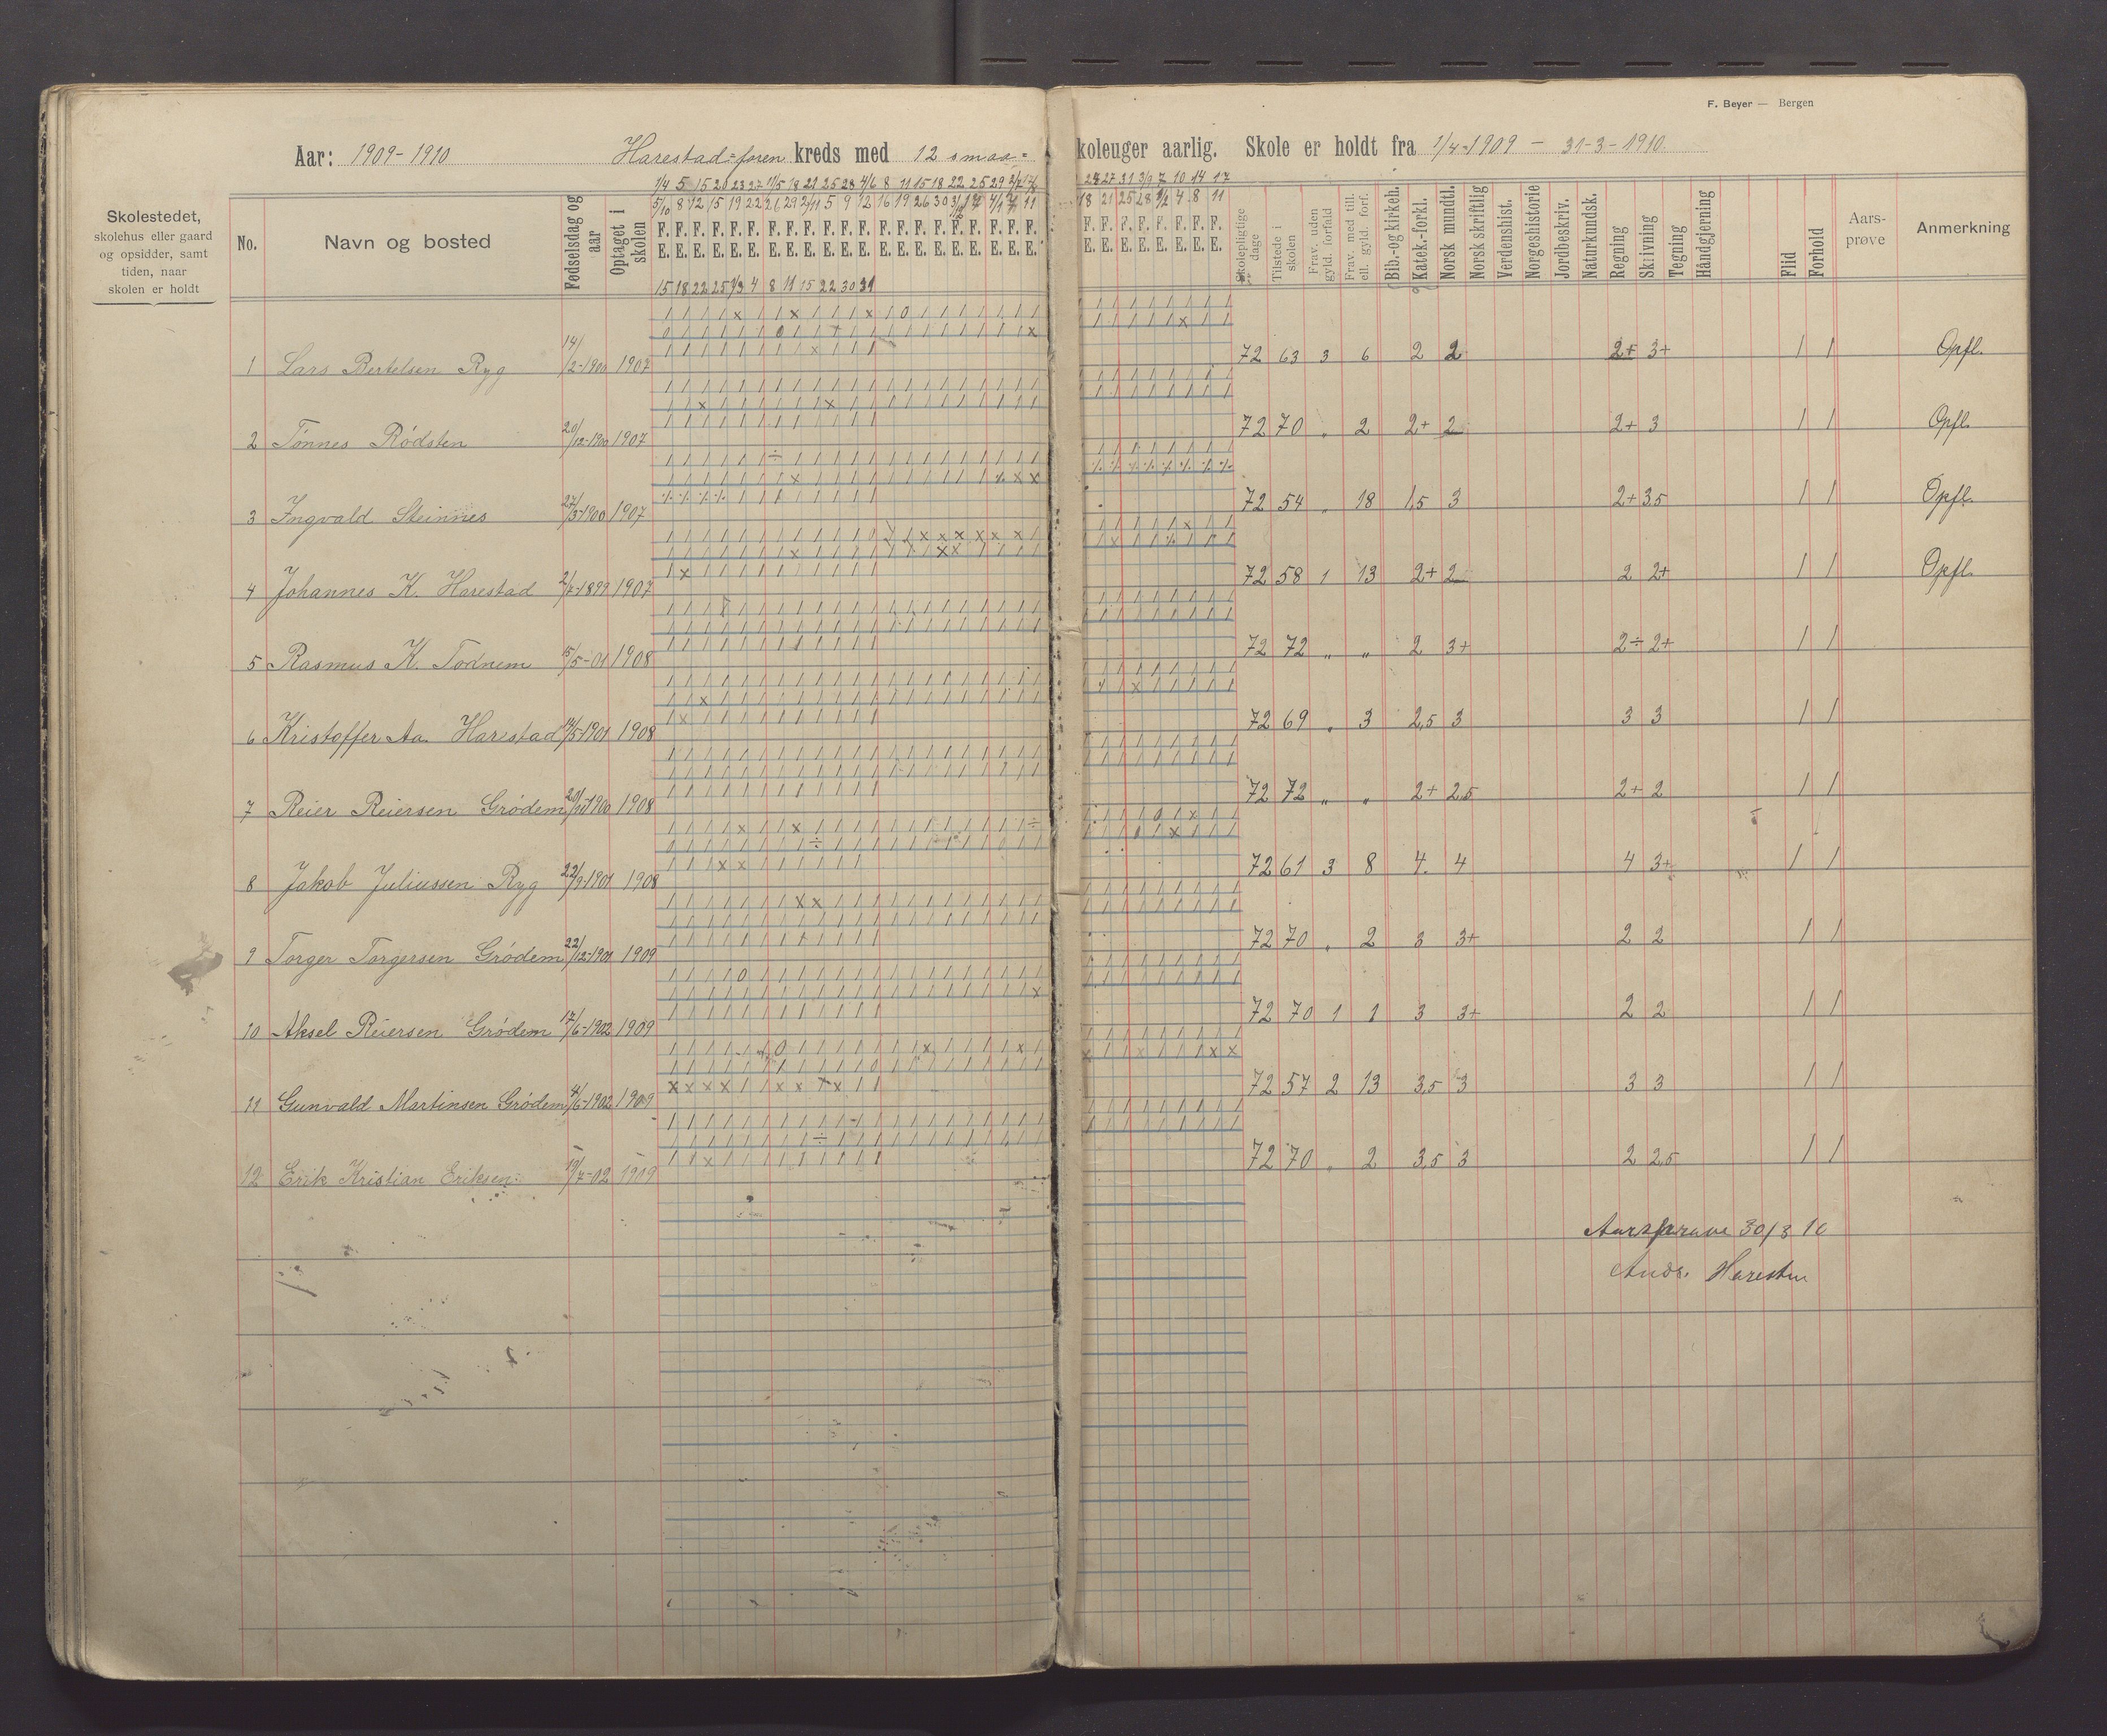 F. Beyer — Bergen
Aar: 1909-1910 Harestad-foren kreds med 12 smaa= koleuger aarlig. Skole er holdt fra 1/4-1909 - 31-3-1910
Skolestedet, skolehus eller gaard og opsidder, samt tiden, naar skolen er holdt
No. Navn og bosted Fødselsdag og aar Optaget i skolen
1/4 5 15 20 23 27 11/5 18 21 25 28 4/6 8 11 15 18 22 25 29
24 27 31 3/9 7 10 14 17
5/10 8 12 15 19 22 26 29 2/11 5 9 12 16 19 26 30
18 21 25 28 1/2 4 8 11
F. F. F. F. F. F. F. F. F. F. F. F. F. F. F. F. F. F. F. F. F. F. F. F. F. F. F. F. F.
E. E. E. E. E. E. E. E. E. E. E. E. E. E. E. E. E. E. E. E. E. E. E. E. E. E. E. E. E.
15 18 22 25 1/3 4 8 11 15 22 30 31
Skolepligtige dage Tilstede i skolen Frav. uden gyld. forfald Frav. med till. ell. gyld. forf. Bib.- og kirkeh. Katek.-forkl. Norsk mundtl. Norsk skriftlig Verdenshist. Norgeshistorie Jordbeskriv. Naturkundsk. Regning Skrivning Tegning Håndgjerning Flid Forhold Aars-prøve Anmerkning
1 Lars Bertelsen Ryg 14/2-1900 1907 72 63 3 6 2 2 2+ 3+ 1 1 Opfl.
2 Tønnes Rødsten 20/12-1900 1907 72 70 „ 2 2+ 2 2+ 3 1 1 Opfl.
3 Ingvald Steinnes 27/3-1900 1907 72 54 „ 18 1,5 3 2+ 3,5 1 1 Opfl.
4 Johannes K. Harestad 2/7-1899 1907 72 58 1 13 2+ 2 2 2+ 1 1 Opfl.
5 Rasmus K. Todnem 15/5-01 1908 72 72 „ „ 2 3+ 2÷ 2+ 1 1
6 Kristoffer Aa. Harestad 14/5-1901 1908 72 69 „ 3 2,5 3 3 3 1 1
7 Reier Reiersen Grødem 1900 1908 72 72 „ „ 2+ 2,5 2+ 2 1 1
8 Jakob Juliussen Ryg 22/9-1901 1908 72 61 3 8 4 4 4 3+ 1 1
9 Torger Torgersen Grødem 22/12-1901 1909 72 70 „ 2 3 3+ 2 2 1 1
10 Aksel Reiersen Grødem 17/6-1902 1909 72 70 1 1 3 3+ 2 2 1 1
11 Gunvald Martinsen Grødem 4/6-1902 1909 72 57 2 13 3,5 3 3 3 1 1
12 Erik Kristian Eriksen 19/7-02 1909 72 70 „ 2 3,5 3 2 2,5 1 1
Aarsprøve 30/3 10
Andr.